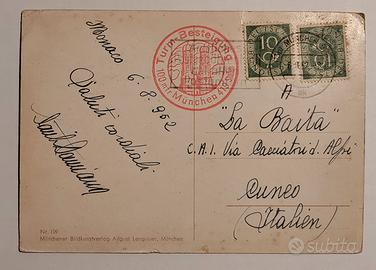 Monaco 6.8.952
Saluti cordiali
Turm-Besteigung
100 m ü. München 410 Stufen
10
10
MÜNCHEN
A
"La Baita"
C.A.I. Via Cacciatori d. Alpi
Cuneo
(Italien)
Nr. 119
Münchener Bildkunstverlag August Lengauer, München
subito